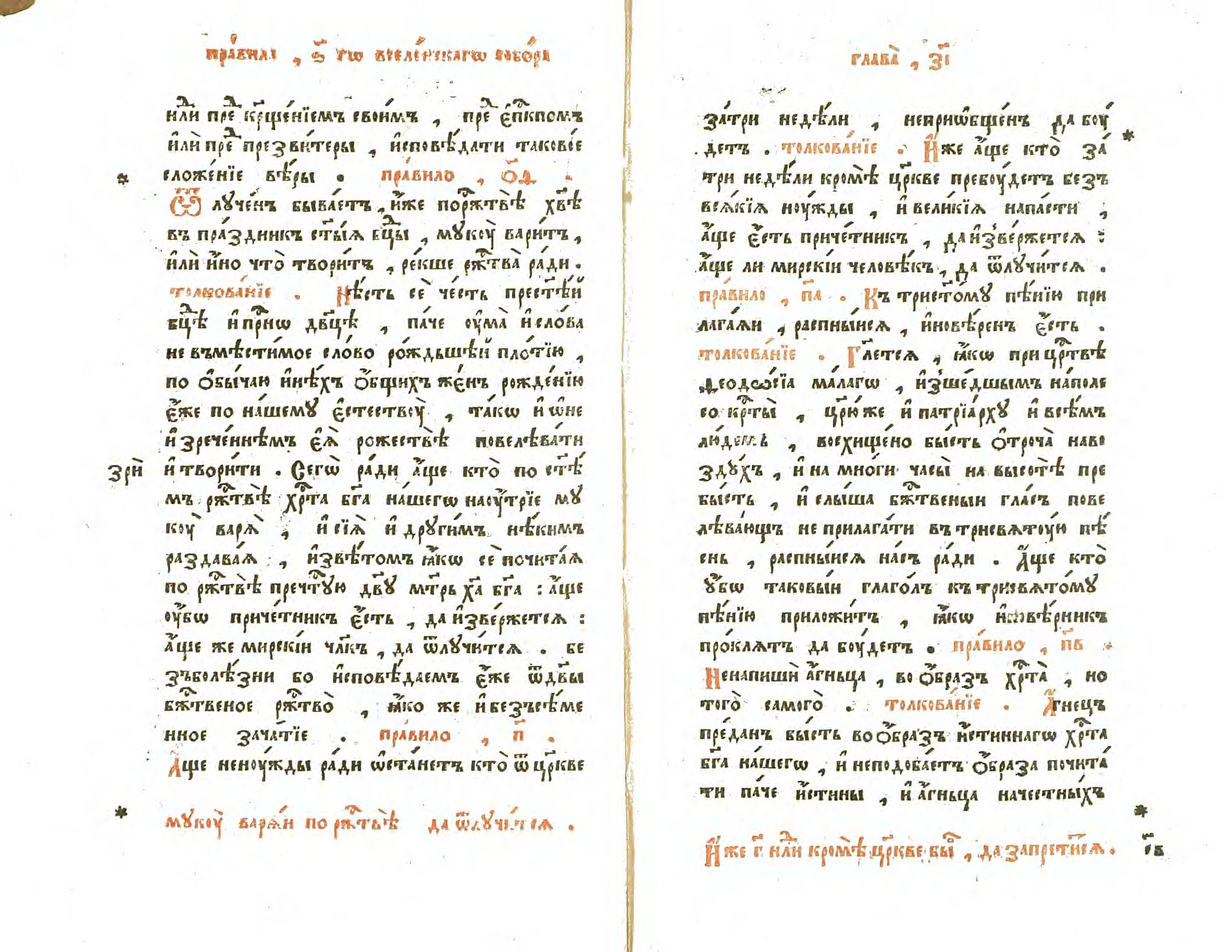 пра́вила , ѕ҃ гѡ вселе́нскагѡ собо́ра
и҆лѝ преⷣ крⷭ҇ще́нїемъ свои́мъ , преⷣ є҆пⷭ҇копомъ
и҆лѝ преⷣ презви́теры , и҆сповѣ́дати таково́е
сложе́нїе вѣ́ры . пра́вило , ѻ҃ѳ .
Ѿлꙋче́нъ быва́етъ , и҆́же порⷤтвѣ̀ хв҃ѣ
въ пра́здникъ ст҃ы́ѧ бц҃ы , мꙋкоу̀ вари́тъ ,
и҆лѝ и҆́но что̀ твори́тъ , ре́кше ржⷭ҇тва̀ ра́ди .
толкова́нїе . Нѣ́сть сѐ че́сть прест҃ѣ́й
бц҃ѣ и҆ прⷭ҇нѡ дв҃цѣ , па́че оу҆ма̀ и҆ сло́ва
не въмѣсти́мое сло́во ро́ждьшей пло́тїю ,
по ѻ҆бы́чаю и҆нѣ́хъ ѻ҆́бщихъ же́нъ рожде́нїю
є҆́же по на́шемꙋ є҆стествоу̀ , та́кѡ и҆ ѡ҆ не
и҆зрече́ннѣмъ є҆ѧ̀ рожествѣ̀ повелѣва́ти
зрѝ и҆ твори́ти . Сегѡ̀ ра́ди а҆́ще кто̀ по ст҃ѣ́
мъ ржⷭ҇твѣ̀ хрⷭ҇та̀ бг҃а на́шегѡ наоу́трїе мꙋ
коу̀ варѧ̀ , и҆ сїѧ̀ и҆ дрꙋги́мъ нѣ́кимъ
раздава́ѧ , и҆звѣ́томъ ꙗ҆́кѡ сѐ почита́ѧ
по ржⷭ҇твѣ̀ пречⷭ҇тꙋю дв҃ꙋ мт҃рь хⷭ҇а бг҃а : а҆́ще
оу҆́бѡ приче́тникъ є҆́сть , да и҆зве́ржетсѧ :
а҆́ще же мирскі́и чл҃къ , да ѿлꙋчи́тсѧ . бе
зъболѣ́зни бо и҆сповѣ́даемъ є҆́же ѿ дв҃ы
бжⷭ҇твеное ржⷭ҇тво̀ , ꙗ҆́ко же и҆ безъсѣ́ме
нное зача́тїе . пра́вило , п҃ .
А҆́ще неноу́жды ра́ди ѡ҆ста́нетъ кто̀ ѿ цр҃кве
* мꙋкоу̀ варѧ́и по ржⷭ҇твѣ̀ да ѿлꙋчи́тсѧ .
глава̀ , з҃і
за́ три недѣ́ли , неприѡ҆бще́нъ да боу́
детъ . толкова́нїе . И҆́же а҆́ще кто̀ за́
три недѣ́ли кромѣ̀ цр҃кве пребоу́детъ безъ
всѧ́кїѧ ноу́жды , и҆ вели́кїѧ напа́сти ,
а҆́ще є҆́сть приче́тникъ , да и҆зве́ржетсѧ :
а҆́ще ли мирскі́и человѣ́къ , да ѿлꙋчи́тсѧ .
пра́вило , п҃а . Къ трист҃о́мꙋ пѣ́нїю при
лага́ѧи , распны́исѧ , и҆новѣ́ренъ є҆́сть .
толкова́нїе . Гл҃етсѧ , ꙗ҆́кѡ при црⷭ҇твѣ
ѳеодо́сїа ма́лагѡ , и҆зше́дшымъ напо́ле
со крⷭ҇ты̀ , цр҃ю́ же и҆ патрїа́рхꙋ и҆ всѣ́мъ
лю́демъ , восхище́но бы́сть ѻ҆троча̀ наво
здꙋ́хъ , и҆ на мно́ги часы̀ на высотѣ̀ пре
бы́сть , и҆ слы́ша бжⷭ҇твеныи гла́съ пове
лѣва́ющъ не прилага́ти въ трисвѧтоу́ю пѣ́
снь , распны́исѧ на́съ ра́ди . А҆́ще кто̀
оу҆́бѡ таковы́и глаго́лъ къ трисвѧто́мꙋ
пѣ́нїю приложи́тъ , ꙗ҆́кѡ и҆новѣ́рникъ
про́клѧтъ да боу́детъ . пра́вило , п҃в .
Ненапишѝ а҆́гньца , во ѻ҆́бразъ хрⷭ҇та̀ , но
того̀ самого̀ . толкова́нїе . А҆́гнецъ
пре́данъ бы́сть во ѻ҆́бразъ и҆́стиннагѡ хрⷭ҇та̀
бг҃а на́шегѡ , и҆ неподоба́етъ ѻ҆́браза почита́
ти па́че и҆́стины , и҆ а҆́гньца на че́стныхъ
И҆́же г҃ нⷣли кромѣ̀ цр҃кве бы́ , да запрети́тсѧ . *